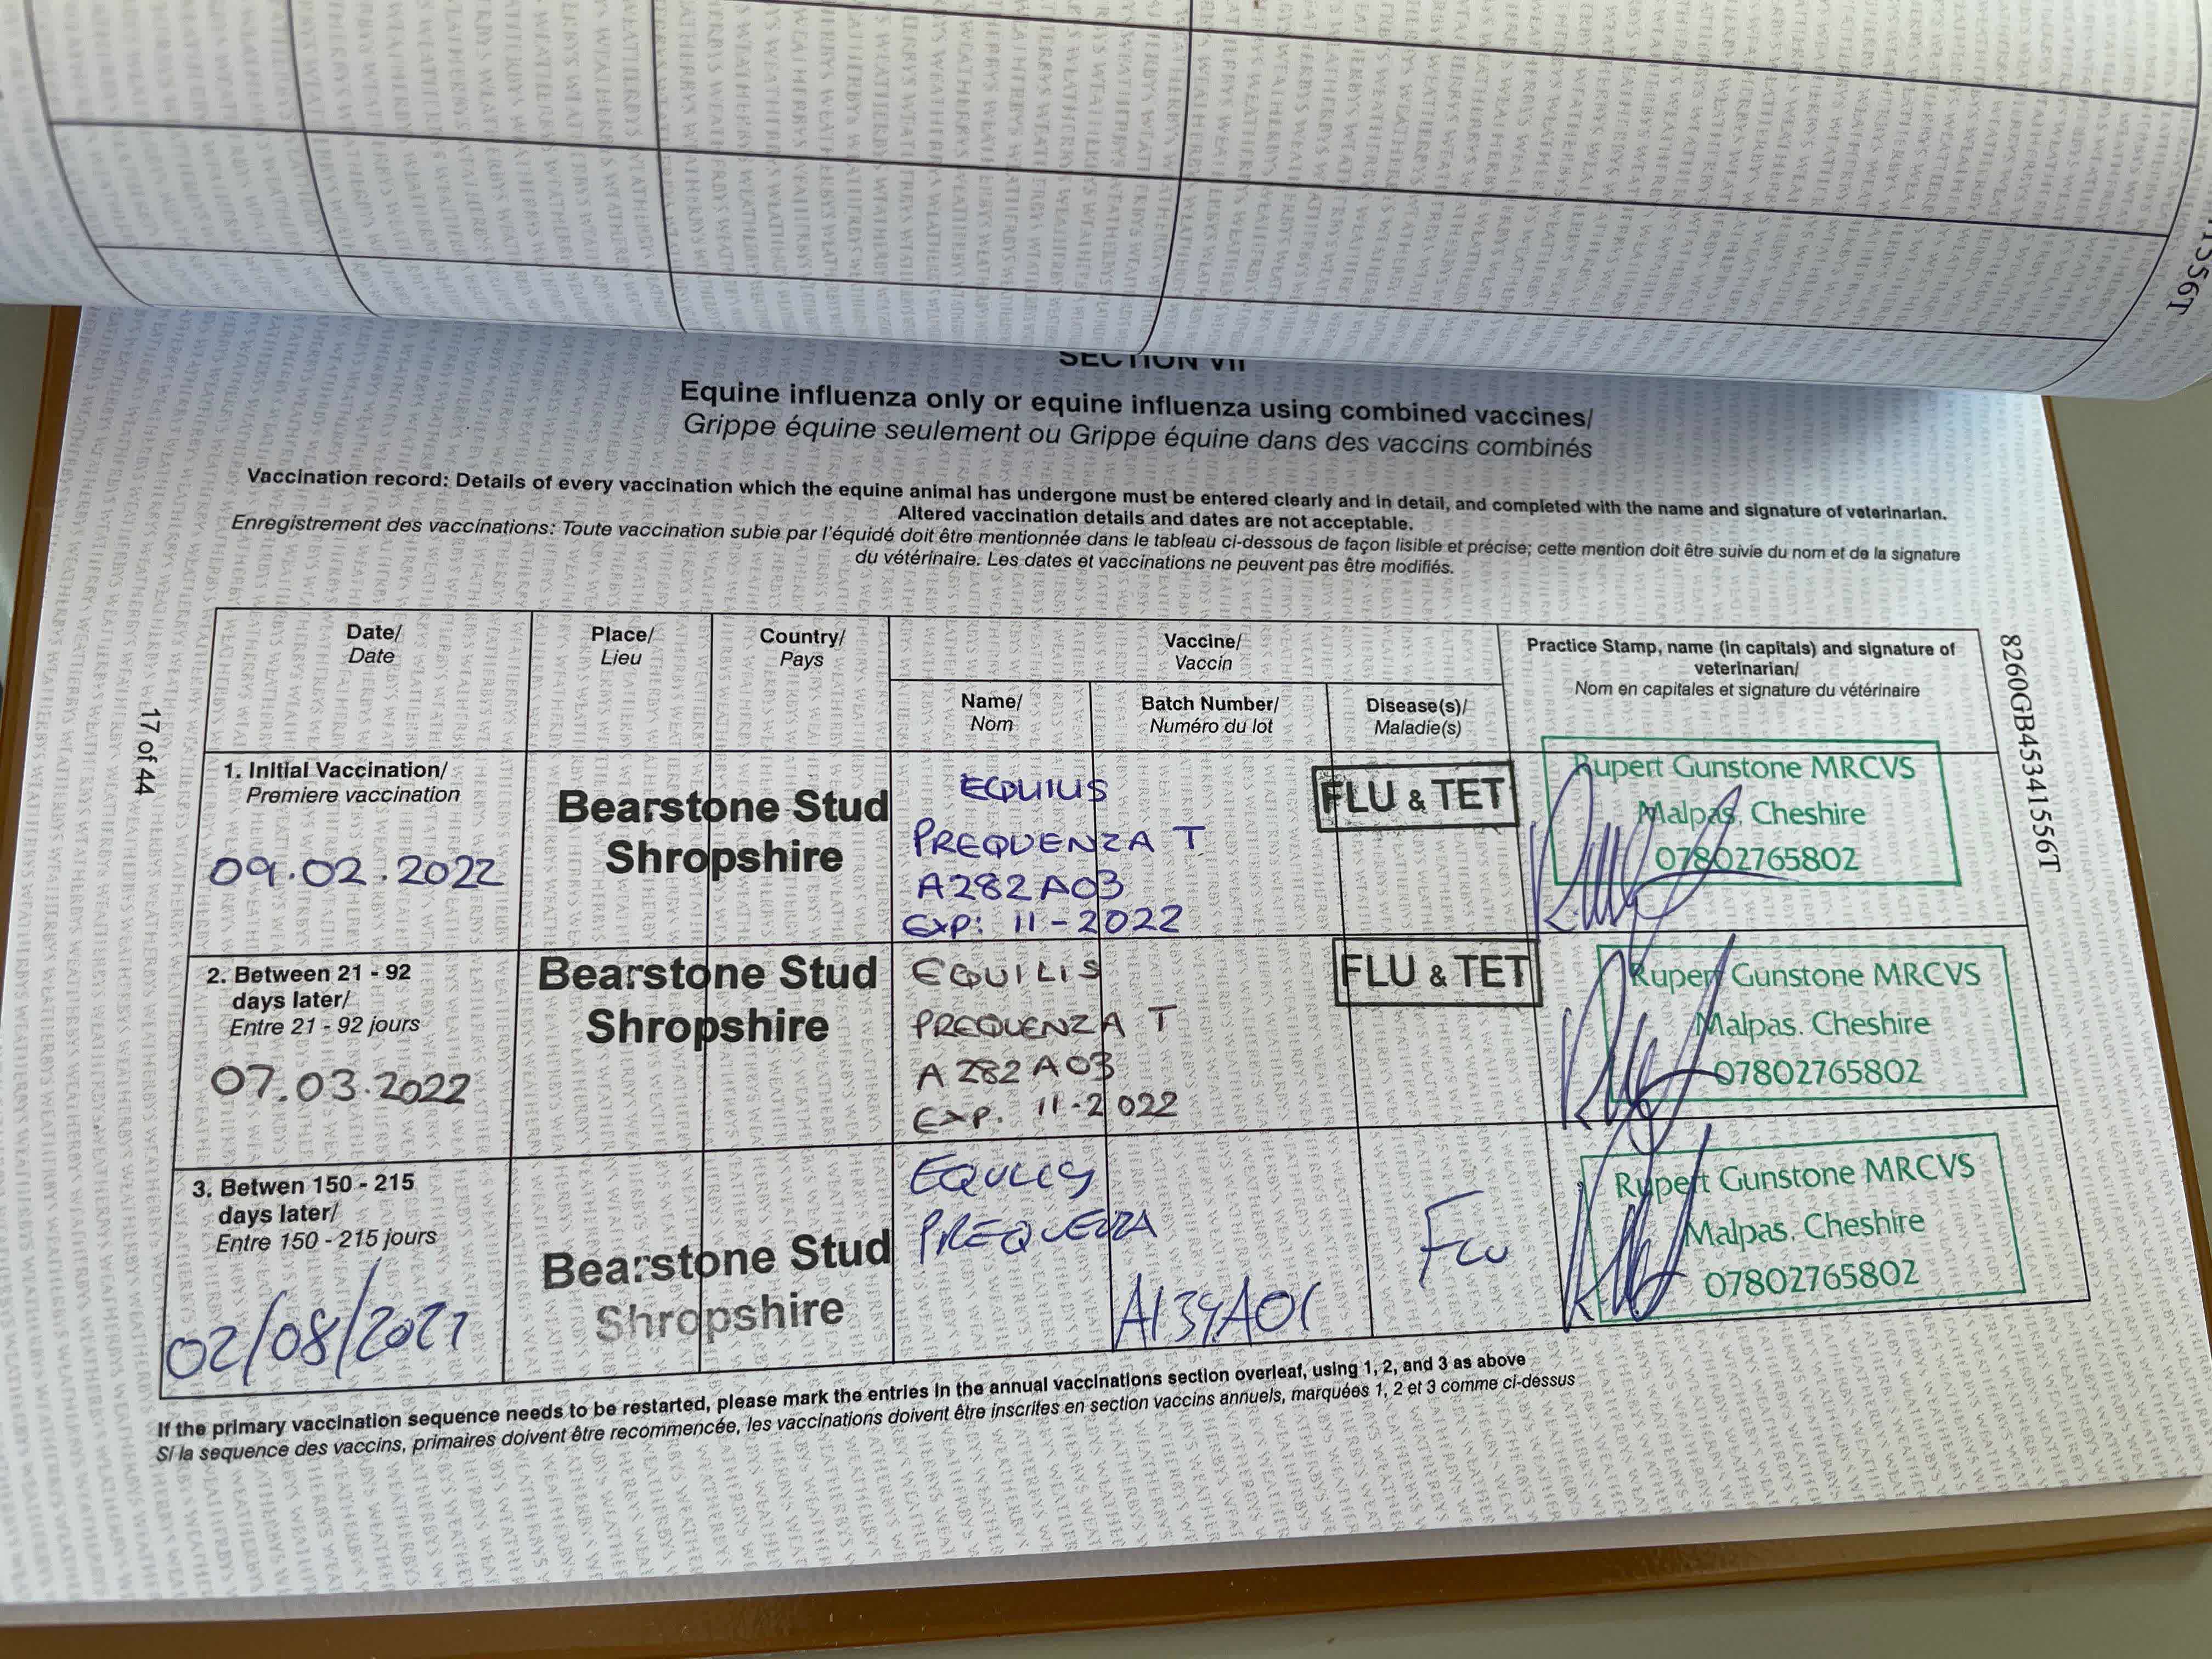 1556T
SECTION VII
Equine influenza only or equine influenza using combined vaccines/
Grippe équine seulement ou Grippe équine dans des vaccins combinés
Vaccination record: Details of every vaccination which the equine animal has undergone must be entered clearly and in detail, and completed with the name and signature of veterinarian.
Altered vaccination details and dates are not acceptable.
Enregistrement des vaccinations: Toute vaccination subie par l'équidé doit être mentionnée dans le tableau ci-dessous de façon lisible et précise; cette mention doit être suivie du nom et de la signature
du vétérinaire. Les dates et vaccinations ne peuvent pas être modifiés.
Date/
Date
Place/
Lieu
Country/
Pays
Vaccine/
Vaccin
Name/
Nom
Batch Number/
Numéro du lot
Disease(s)/
Maladie(s)
Practice Stamp, name (in capitals) and signature of
veterinarian/
Nom en capitales et signature du vétérinaire
1. Initial Vaccination/
Premiere vaccination
09.02.2022
Bearstone Stud
Shropshire
EQUILIS
PREQUENZA T
A282A03
EXP: 11-2022
FLU & TET
Rupert Gunstone MRCVS
Malpas, Cheshire
07802765802
2. Between 21 - 92
days later/
Entre 21 - 92 jours
07.03.2022
Bearstone Stud
Shropshire
EQUILIS
PREQUENZA T
A282A03
EXP. 11-2022
FLU & TET
Rupert Gunstone MRCVS
Malpas. Cheshire
07802765802
3. Betwen 150 - 215
days later/
Entre 150 - 215 jours
Bearstone Stud
Shropshire
FLU
Rupert Gunstone MRCVS
Malpas. Cheshire
07802765802
If the primary vaccination sequence needs to be restarted, please mark the entries in the annual vaccinations section overleaf, using 1, 2, and 3 as above
Si la sequence des vaccins, primaires doivent être recommencée, les vaccinations doivent être inscrites en section vaccins annuels, marquées 1, 2 et 3 comme ci-dessus
17 of 44
8260GB45341556T
WEATHERBYS